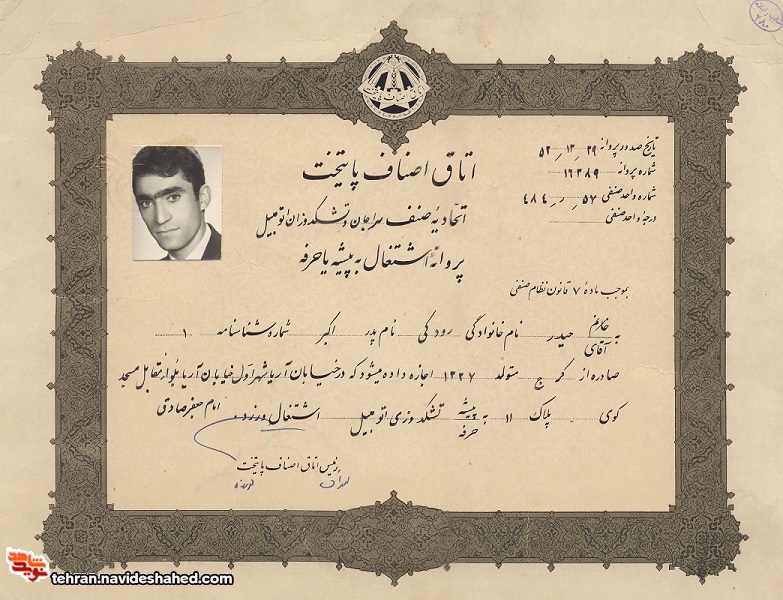 اتاق اصناف پایتخت
اتحادیهٔ صنف سراجان و تشکدوزان اتومبیل
پروانه اشتغال به پیشه یا حرفه
تاریخ صدور پروانه ۲۹ ر ۱۲ ر ۵۲
شماره پروانه ۱۶۳۸۹
شماره واحد صنفی ۵۷ ر ر ۴۸۴
درجهٔ واحد صنفی
بموجب مادهٔ ۷ قانون نظام صنفی
به خانم آقای حیدر نام خانوادگی رودکی نام پدر اکبر شماره شناسنامه ۱
صادره از کرج متولد ۱۳۲۷ اجازه داده میشود که در خیابان آریاشهر اول خیابان آریا مقابل مسجد
امام جعفر صادق
کوی پلاک ۱۱ به پیشه حرفه تشکدوزی اتومبیل اشتغال ورزد
رئیس اتاق اصناف پایتخت
شاهد
نوید
tehran.navideshahed.com